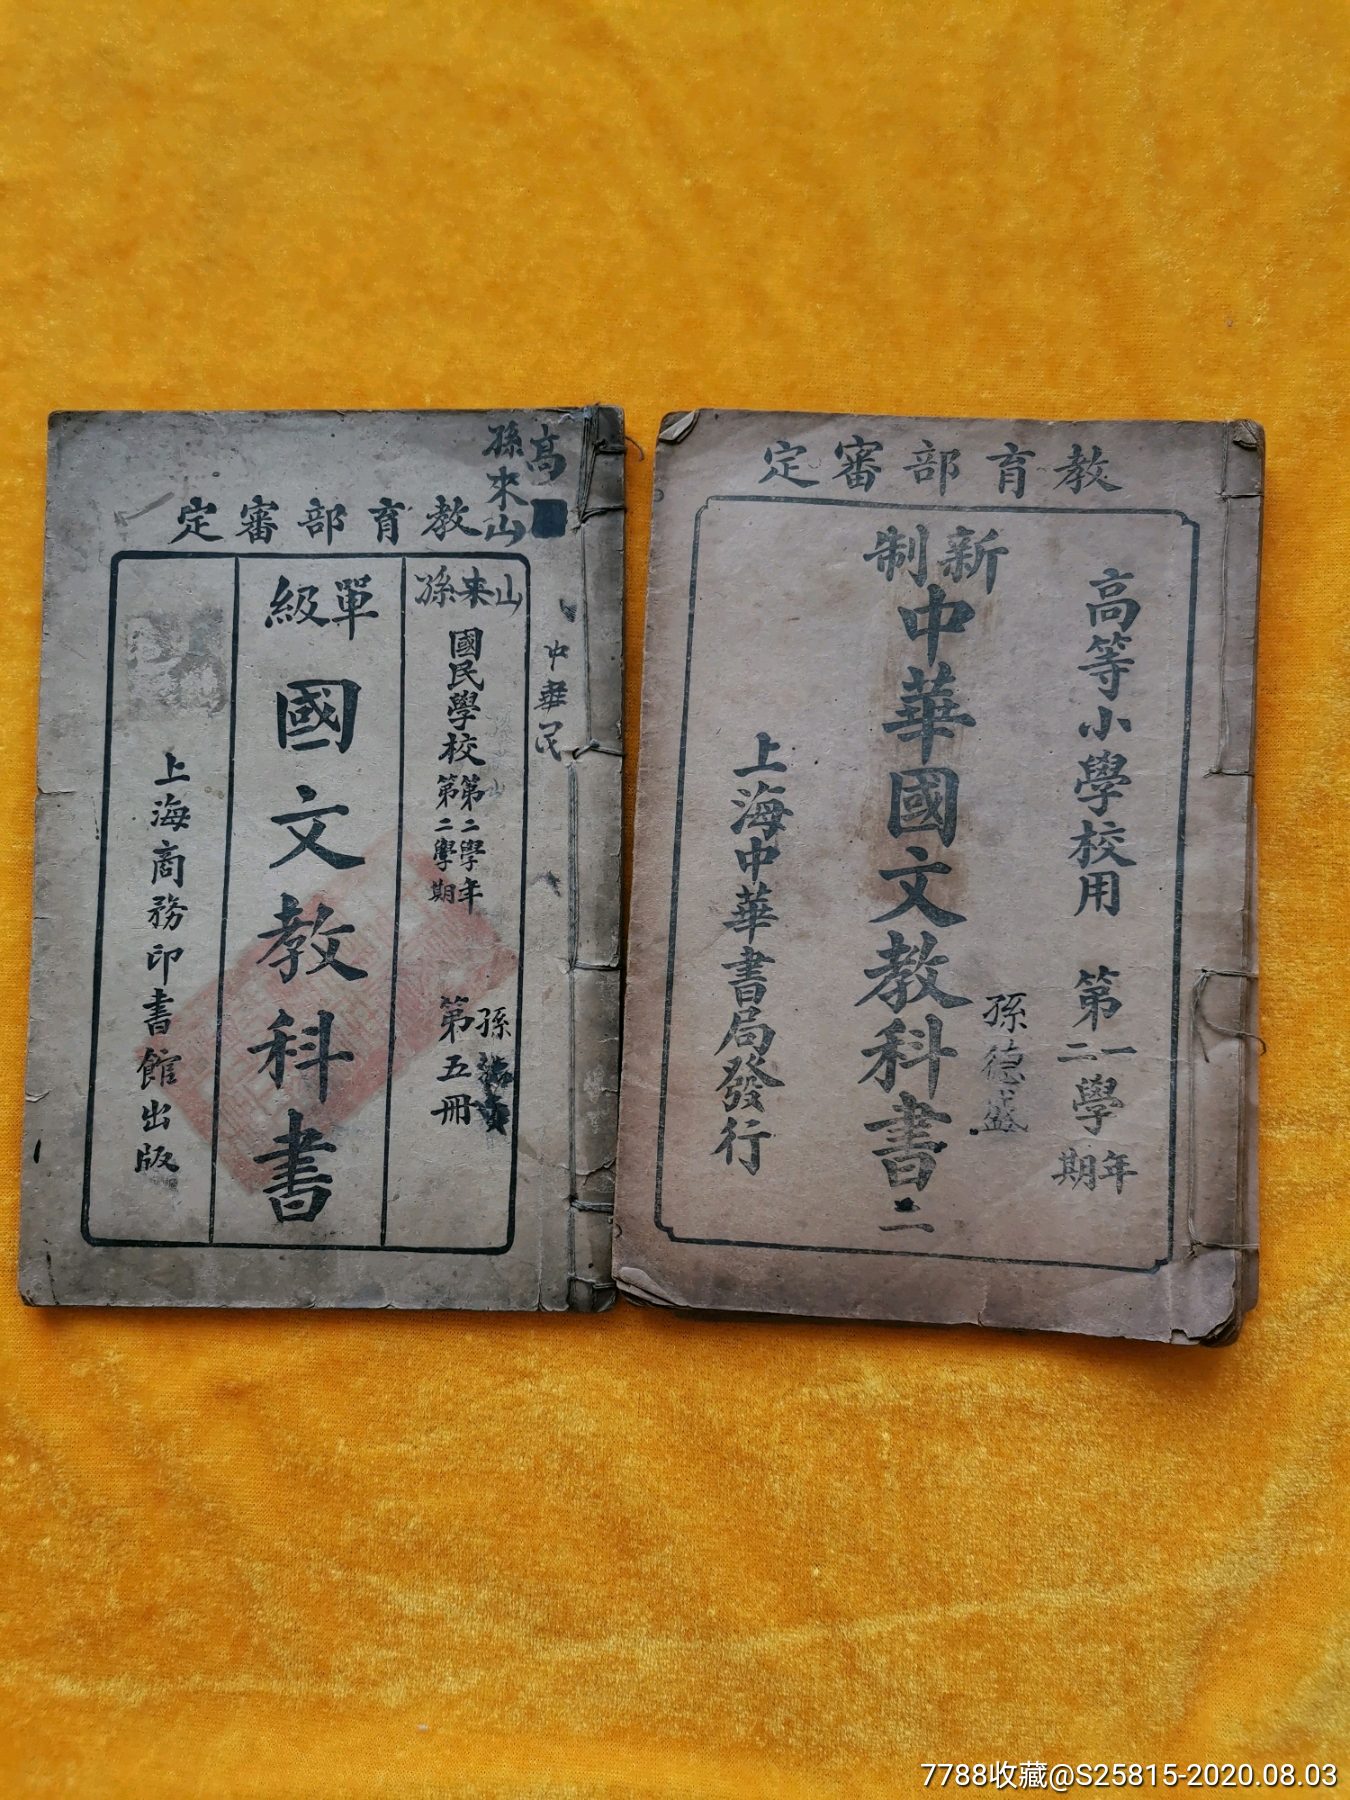 教育部審定
單級
國文教科書
國民學校
第二學年
第二學期
第五冊
上海商務印書館出版
高
孫來山
山来孫
中華民
孫
教育部審定
高等小學校用
第一學年
二學期
新制
中華國文教科書二
上海中華書局發行
孫德盛
7788收藏@S25815-2020.08.03